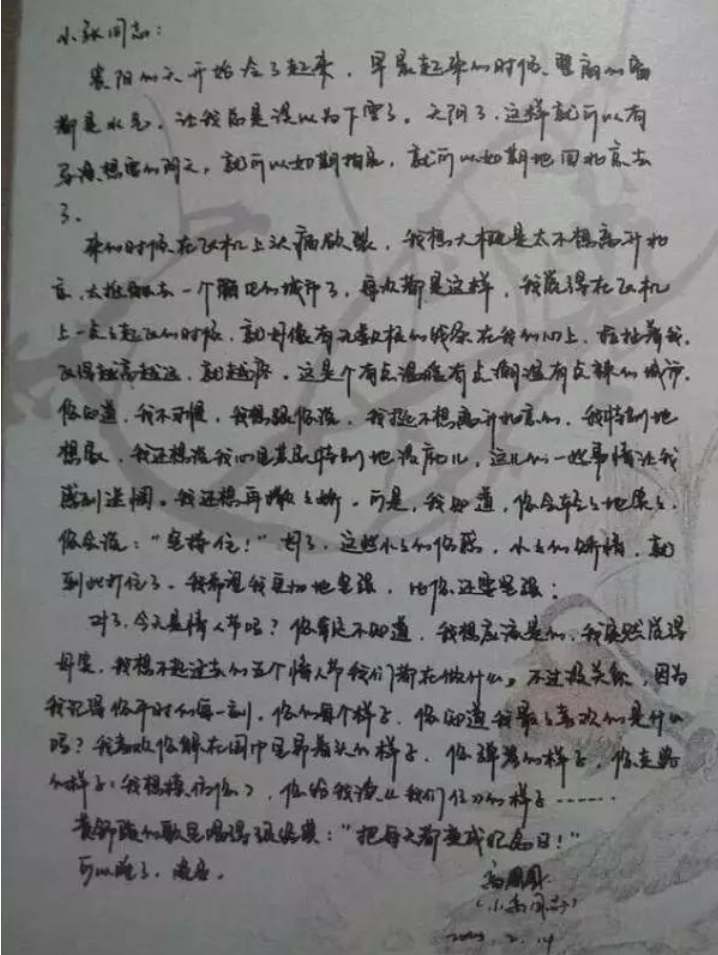 小张同志：
襄阳的天开始冷了起来，早晨起来的时候，
都是水气，让我总是误以为下雪了。天阴了，这样就可以有
的阴天，就可以如期拍完，就可以如期地回北京去
了。
来的时候在飞机上头痛欲裂，我想大概是太不想离开北
京，太抵触去一个陌生的城市了，每次都是这样，我总觉得在飞机
上一点点起飞的时候，就好像有无数根的线系在我的心上，拉扯着我，
飞得越高越远，就越疼。这是个有点温暖有点潮湿有点辣的城市。
你知道，我不习惯，我想跟你说，我挺不想离开北京的，我特别地
想家，我还想说我心里其实特别地没底儿，这儿的一些事情让我
感到迷惘。我还想再撒撒娇。可是，我知道，你会轻轻地笑笑，
你会说：“坚持住！”对了，这些小小的伤感，小小的矫情，就
到此打住了。我希望我更加地坚强，比你还要坚强；
对了，今天是情人节吗？你肯定不知道，我想应该是的，我突然觉得
好笑，我想不起过去的五个情人节我们都在做什么。不过没关系，因为
我记得你平时的每一刻，你的每个样子，你知道我最最喜欢的是什么
吗？我喜欢你躲在围巾里歪着头的样子，你弹琴的样子，你走路
的样子（我想模仿你），你给我读《我们仨》的样子……
黄舒骏的歌里唱得很经典：“把每天都变成纪念日！”
可以睡了，晚安。
（小 同志）
2.14